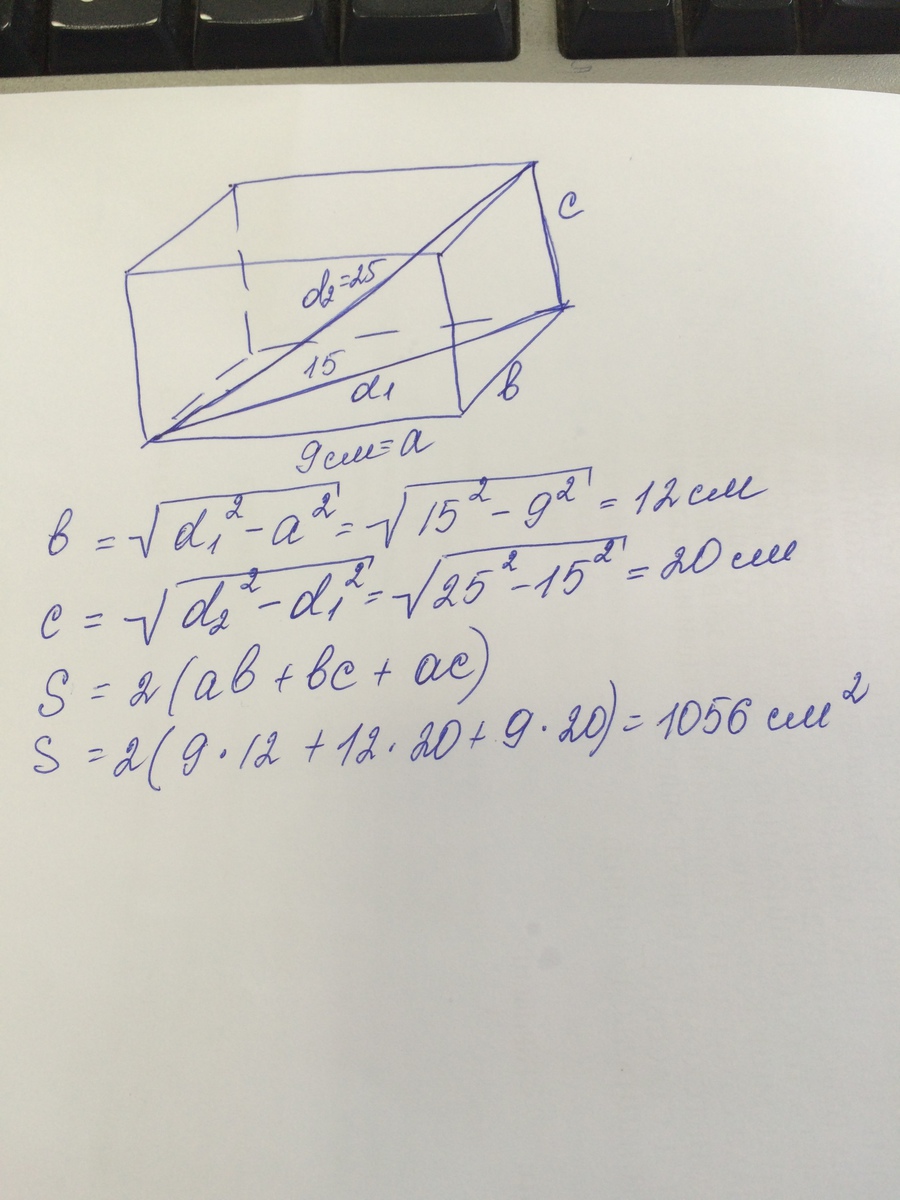 c
d₂=25
15
d₁
в
9см=a
в = √(d₁² - a²) = √(15² - 9²) = 12 см
c = √(d₂² - d₁²) = √(25² - 15²) = 20 см
S = 2(aв + вc + ac)
S = 2(9·12 + 12·20 + 9·20) = 1056 см²